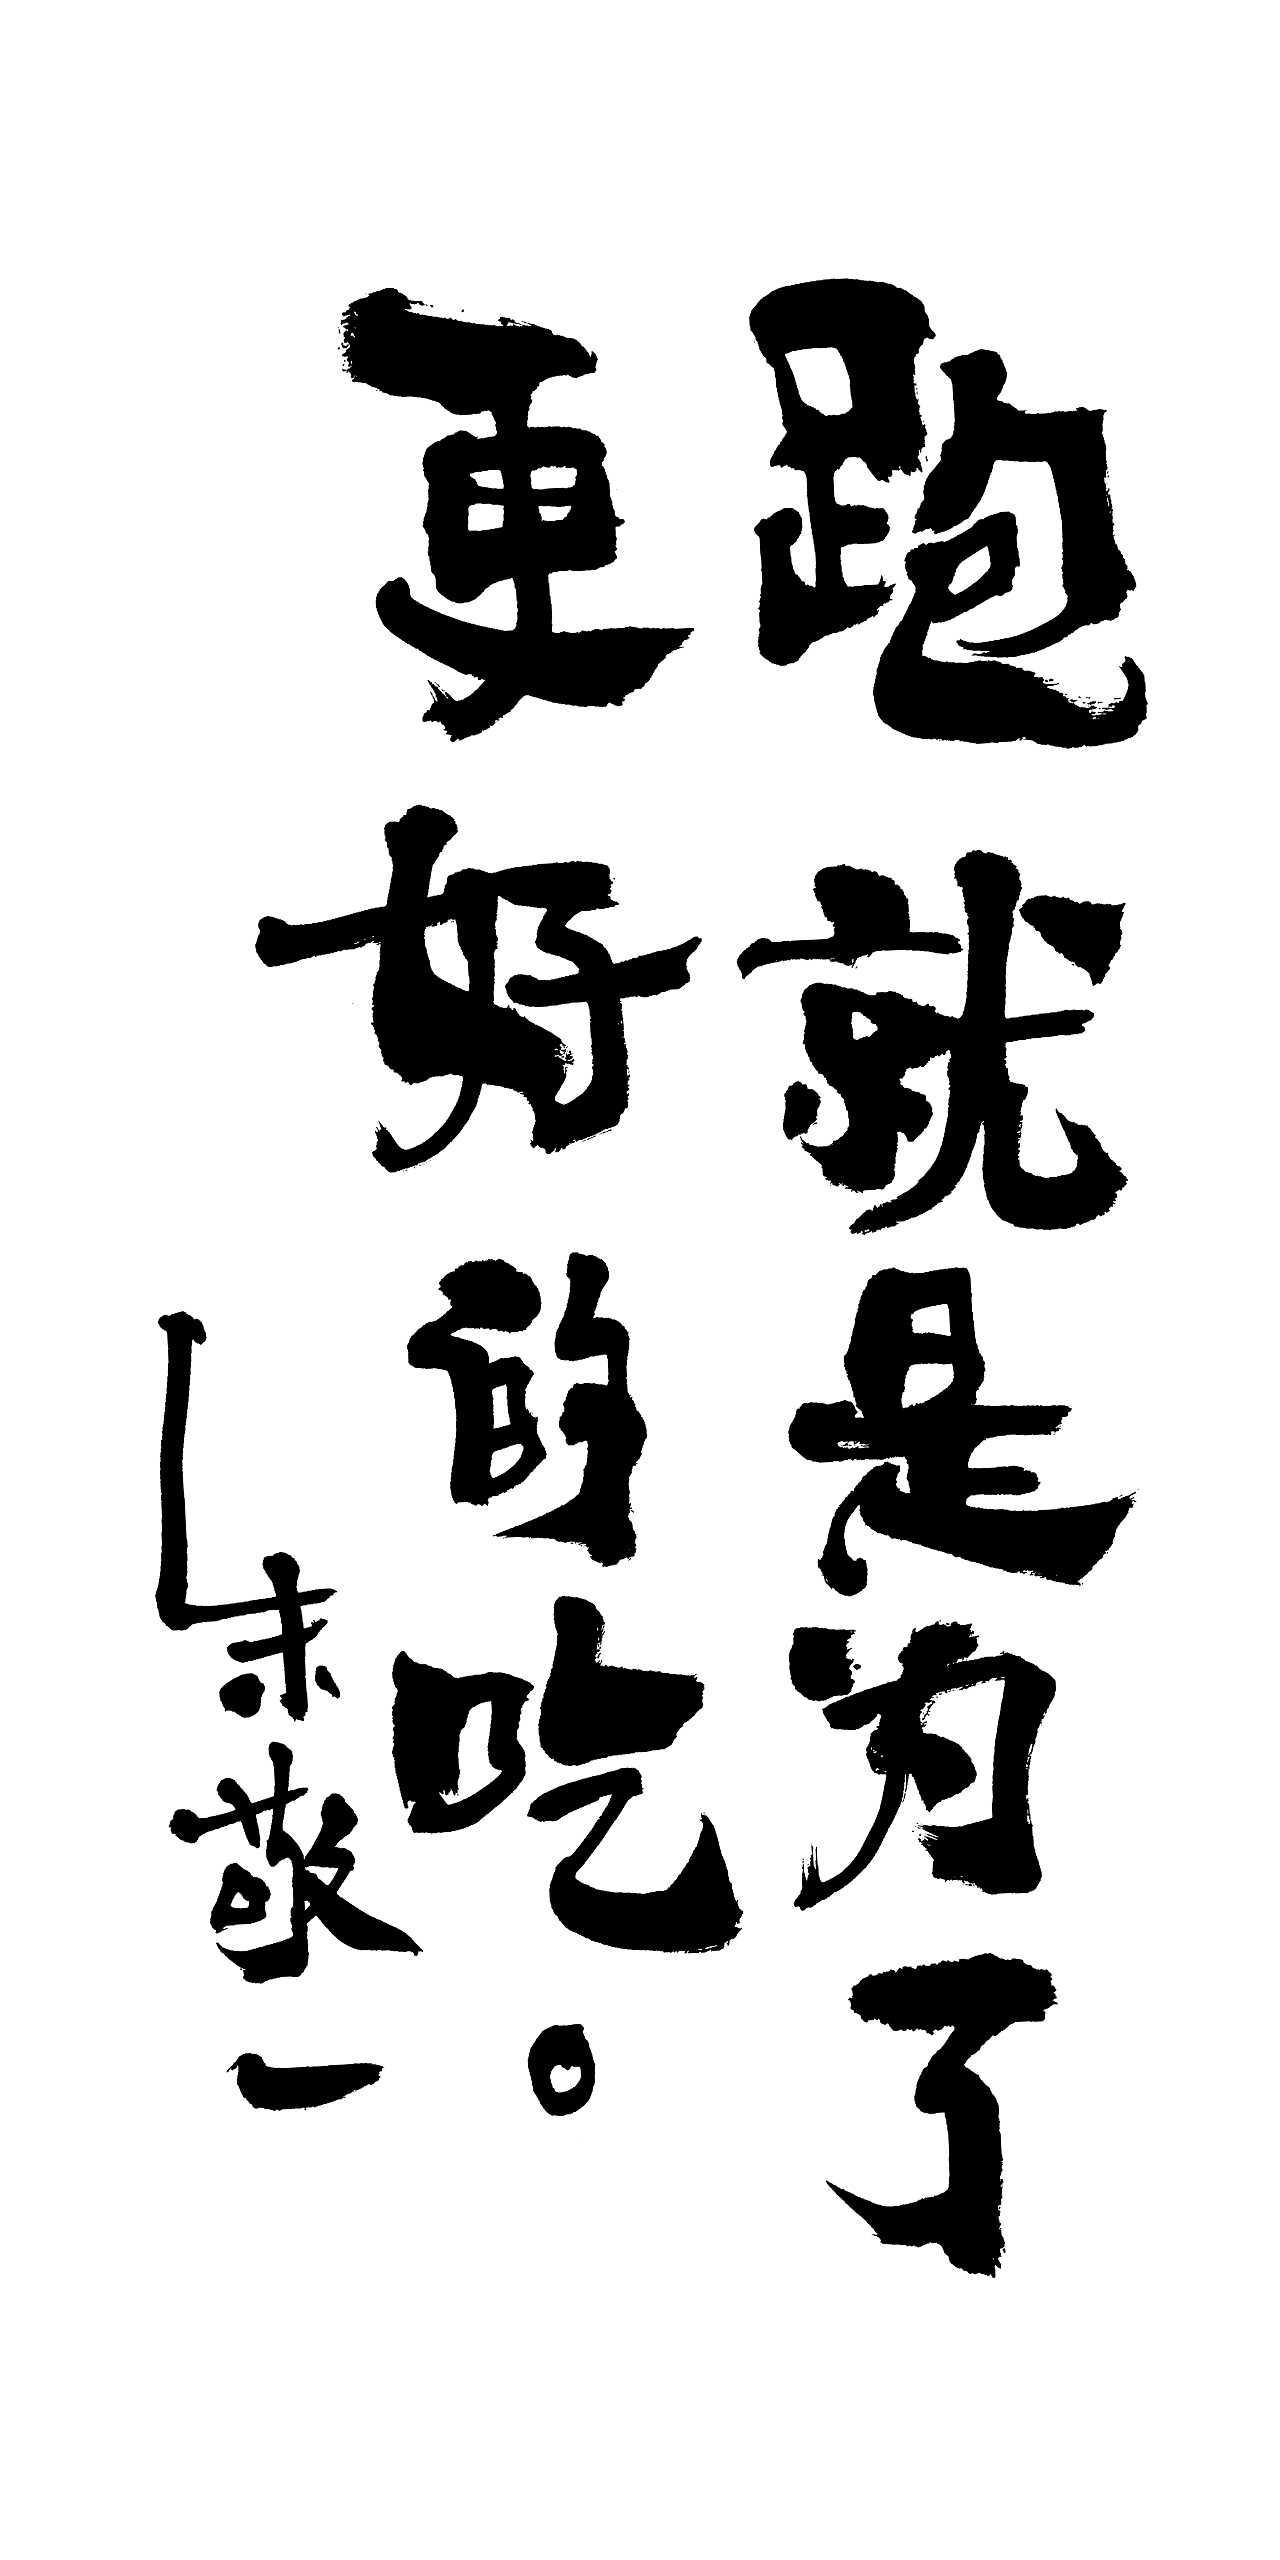 跑就是为了
更好的吃。
朱敬一